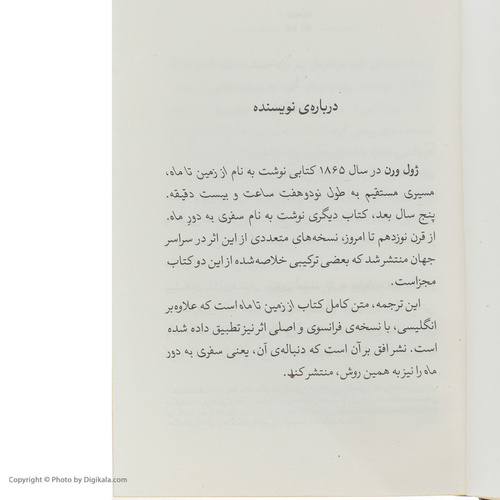 درباره‌ی نویسنده
ژول ورن در سال ۱۸۶۵ کتابی نوشت به نام از زمین تا ماه،
مسیری مستقیم به طول نودوهفت ساعت و بیست دقیقه.
پنج سال بعد، کتاب دیگری نوشت به نام سفری به دورِ ماه.
از قرن نوزدهم تا امروز، نسخه‌های متعددی از این اثر در سراسر
جهان منتشر شد که بعضی ترکیبی خلاصه‌شده از این دو کتاب
مجزاست.
این ترجمه، متن کامل کتاب از زمین تا ماه است که علاوه‌بر
انگلیسی، با نسخه‌ی فرانسوی و اصلی اثر نیز تطبیق داده شده
است. نشر افق بر آن است که دنباله‌ی آن، یعنی سفری به دور
ماه را نیز به همین روش، منتشر کند.
Copyright © Photo by Digikala.com